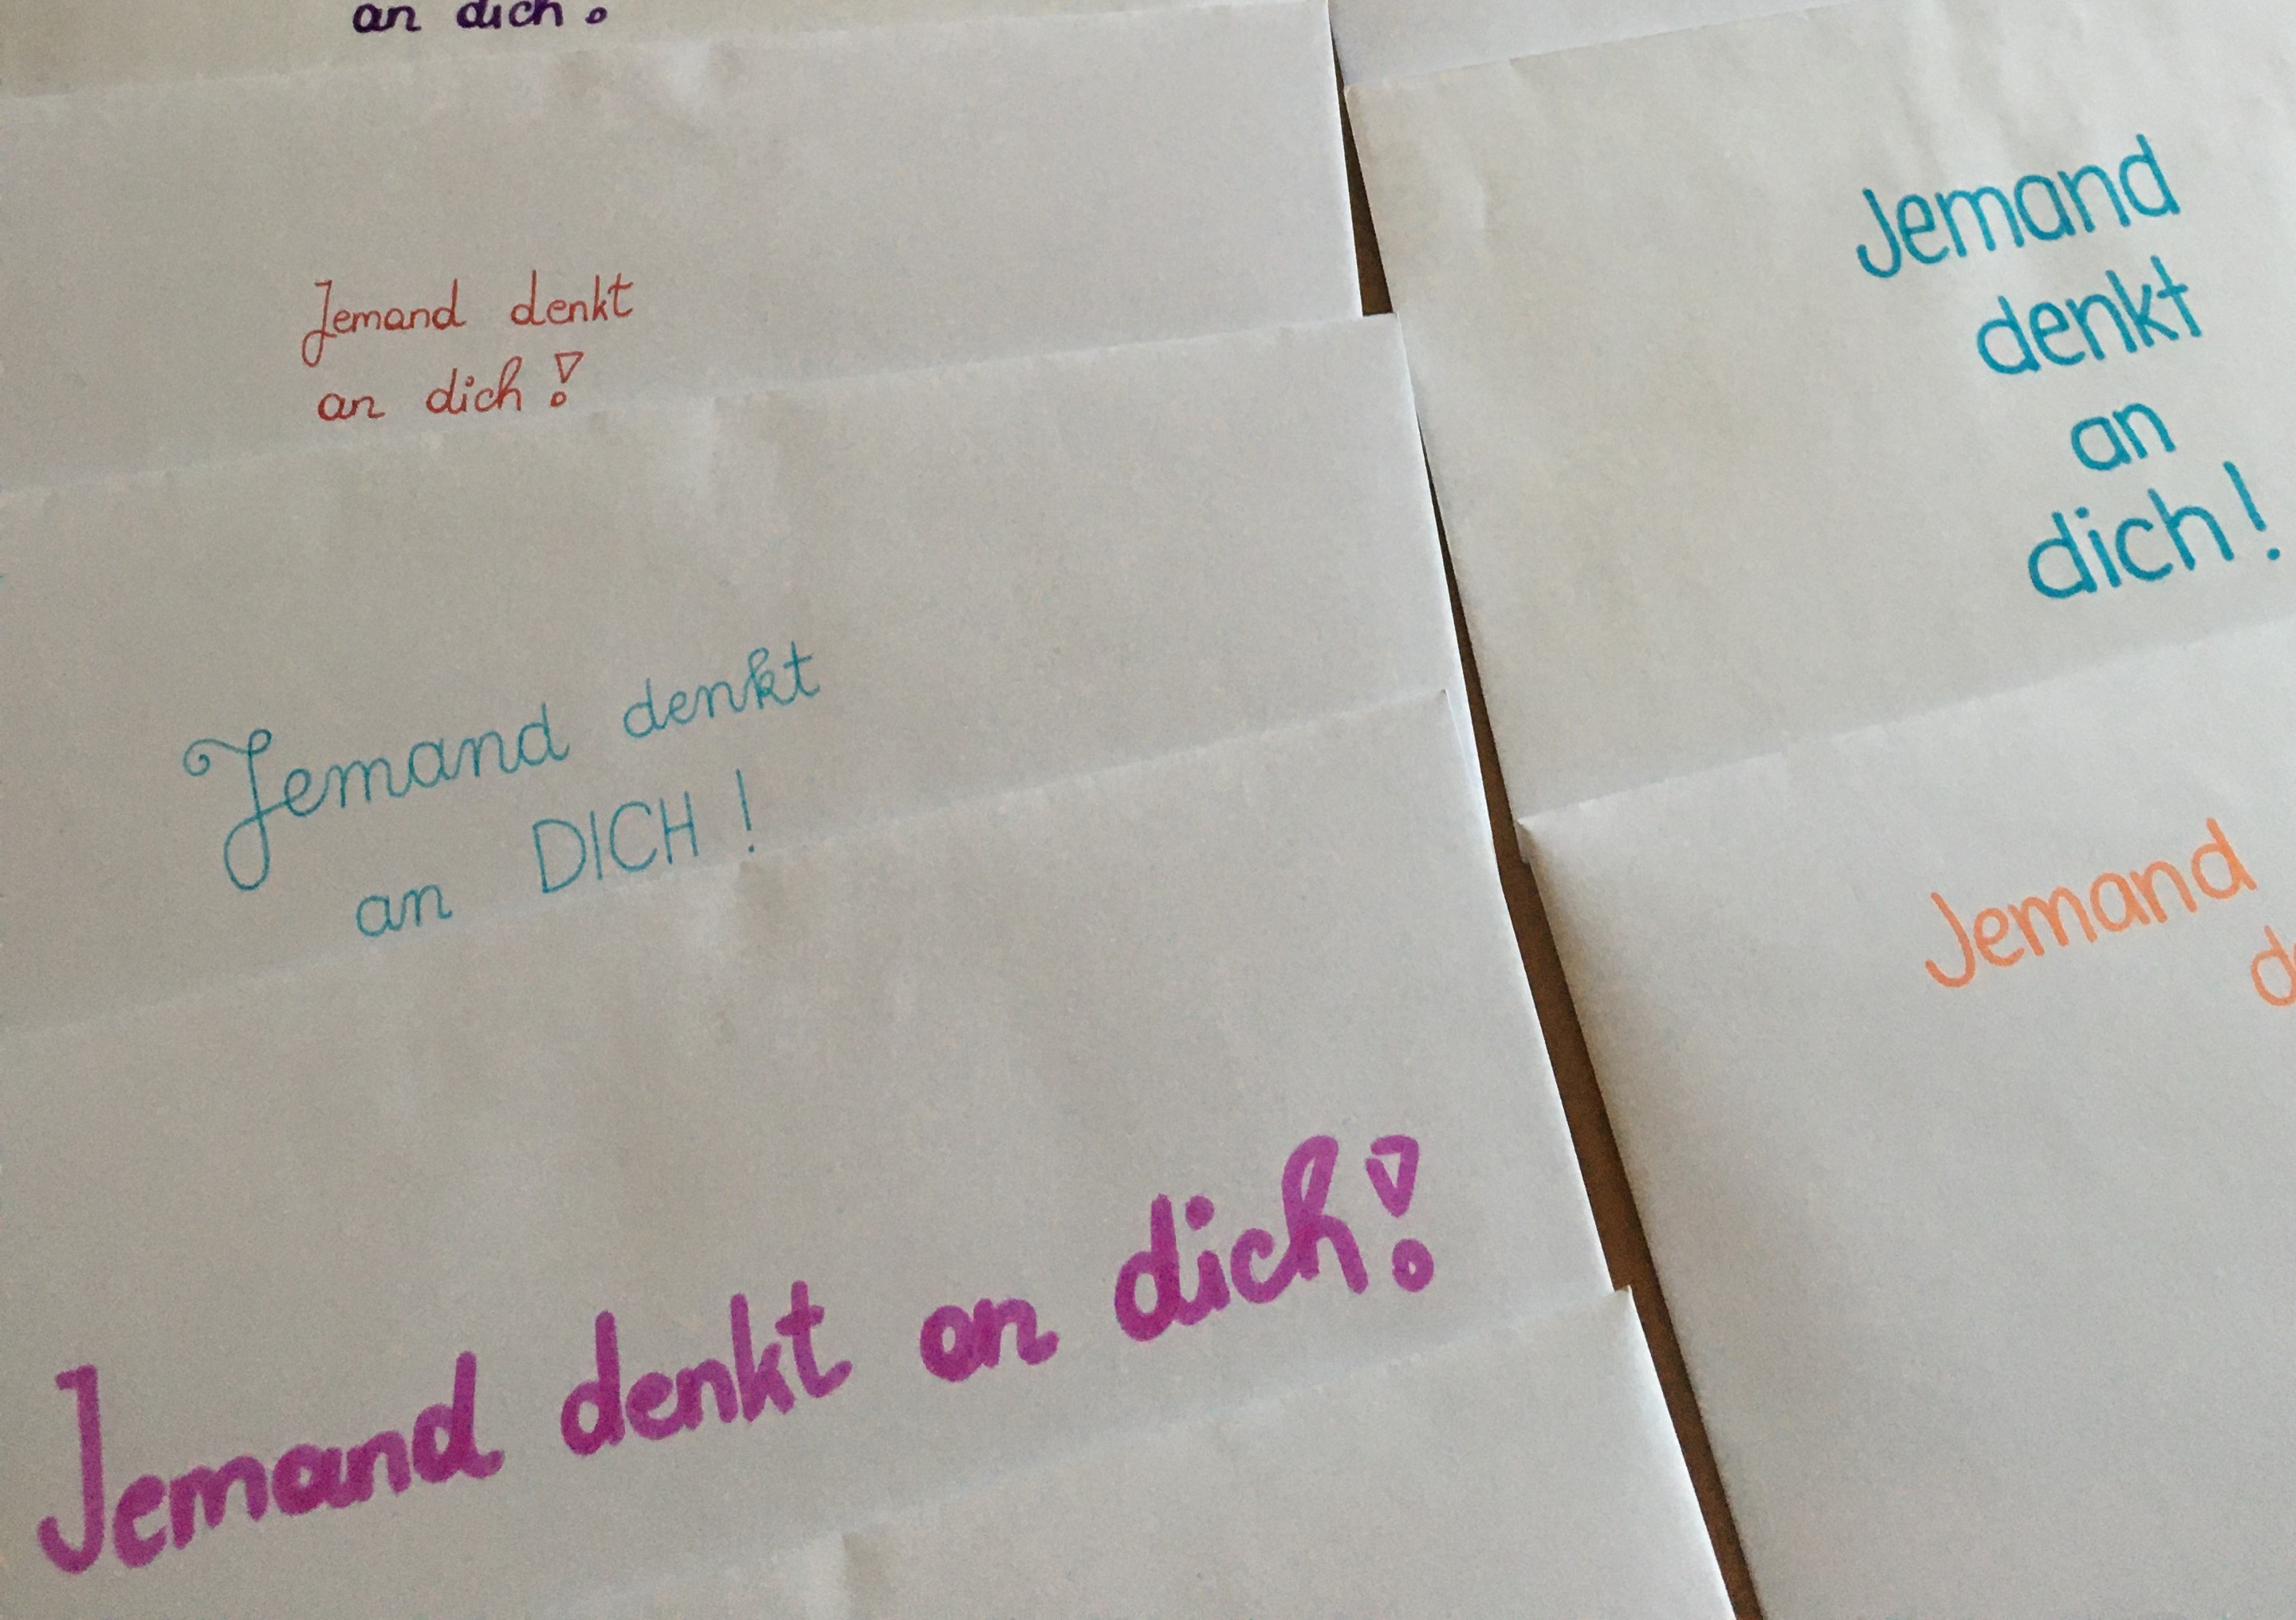 an dich!
Jemand denkt
an dich!
Jemand denkt
an DICH!
Jemand denkt an dich!
Jemand
denkt
an
dich!
Jemand